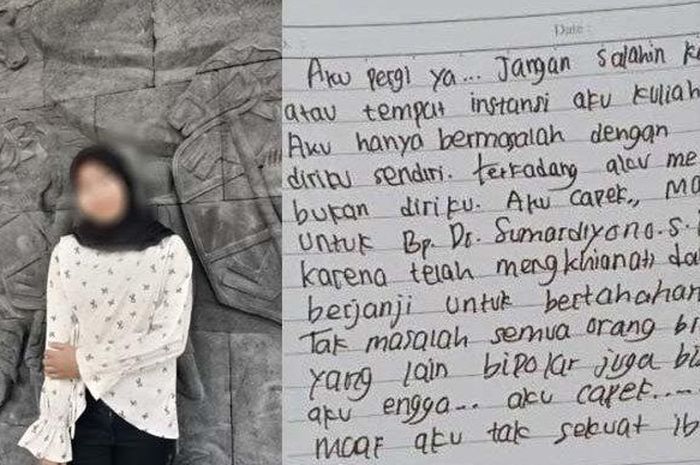 Date :
Aku pergi ya... Jangan salahin k
atau tempat instansi aku kuliah
Aku hanya bermasalah dengan
diriku sendiri. terkadang aku me
bukan diriku. Aku capek,, Ma
untuk Bp. Dr. Sumardiyono. S.
karena telah mengkhianati da
berjanji untuk bertahahan
Tak masalah semua orang bi
yang lain bipolar juga bi
aku engga... aku capek.....
maaf aku tak sekuat ib